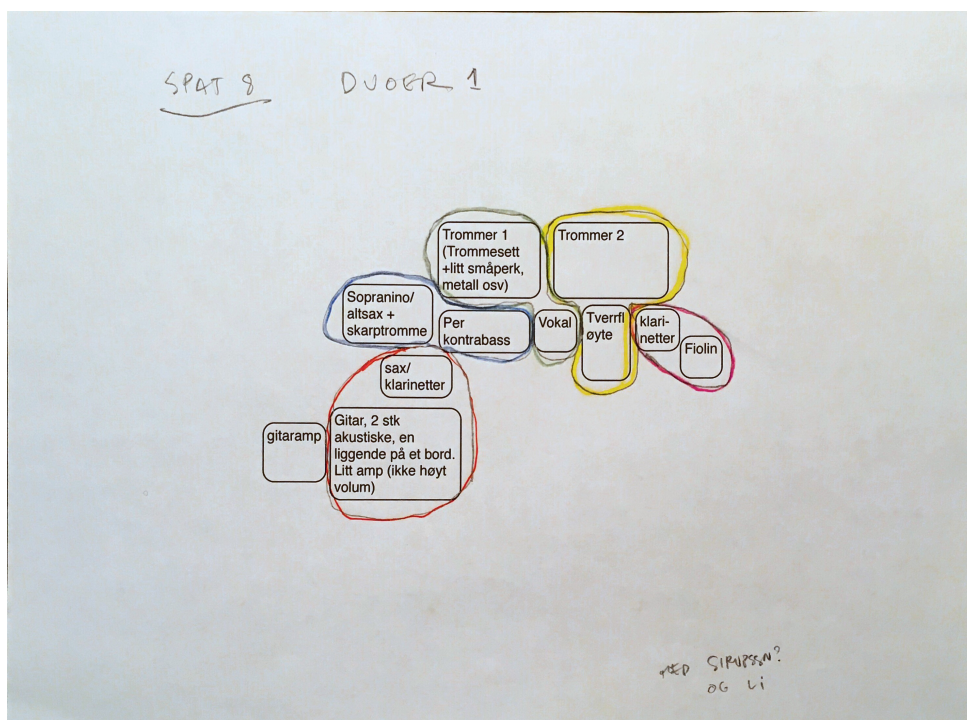 SPAT 8 DUOER 1
Trommer 1
(Trommesett
+litt småperk,
metall osv)
Trommer 2
Sopranino/
altsax +
skarptromme
Per
kontrabass
Vokal
Tverrfl
øyte
klari-
netter
Fiolin
sax/
klarinetter
gitaramp
Gitar, 2 stk
akustiske, en
liggende på et bord.
Litt amp (ikke høyt
volum)
MED
OG Li